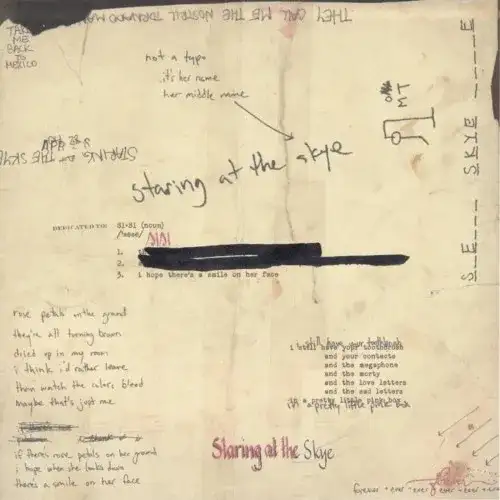 THEY CALL ME THE NOSTRIL TORNANDO MAN
TAKE
ME
BACK
TO
MEXICO
not a typo
it's her name
her middle name
STARING AT THE SKYE
staring at the skye
MT
S_E___ SKYE _____E
DEDICATED TO: SI·SI (noun)
/
SISI
1.
2.
3. i hope there's a smile on her face
rose petals on the ground
they're all turning brown
dried up in my room
i think i'd rather leave
then watch the colors bleed
maybe that's just me
if there's more petals on her ground
i hope when she looks down
there's a smile on her face
still have your toothbrush
i still have your toothbrush
and your contacts
and the megaphone
and the morty
and the love letters
and the sad letters
in a pretty little pink box
in a pretty little pink box
Staring at the Skye
forever - ever - ever - ever - ever - ever